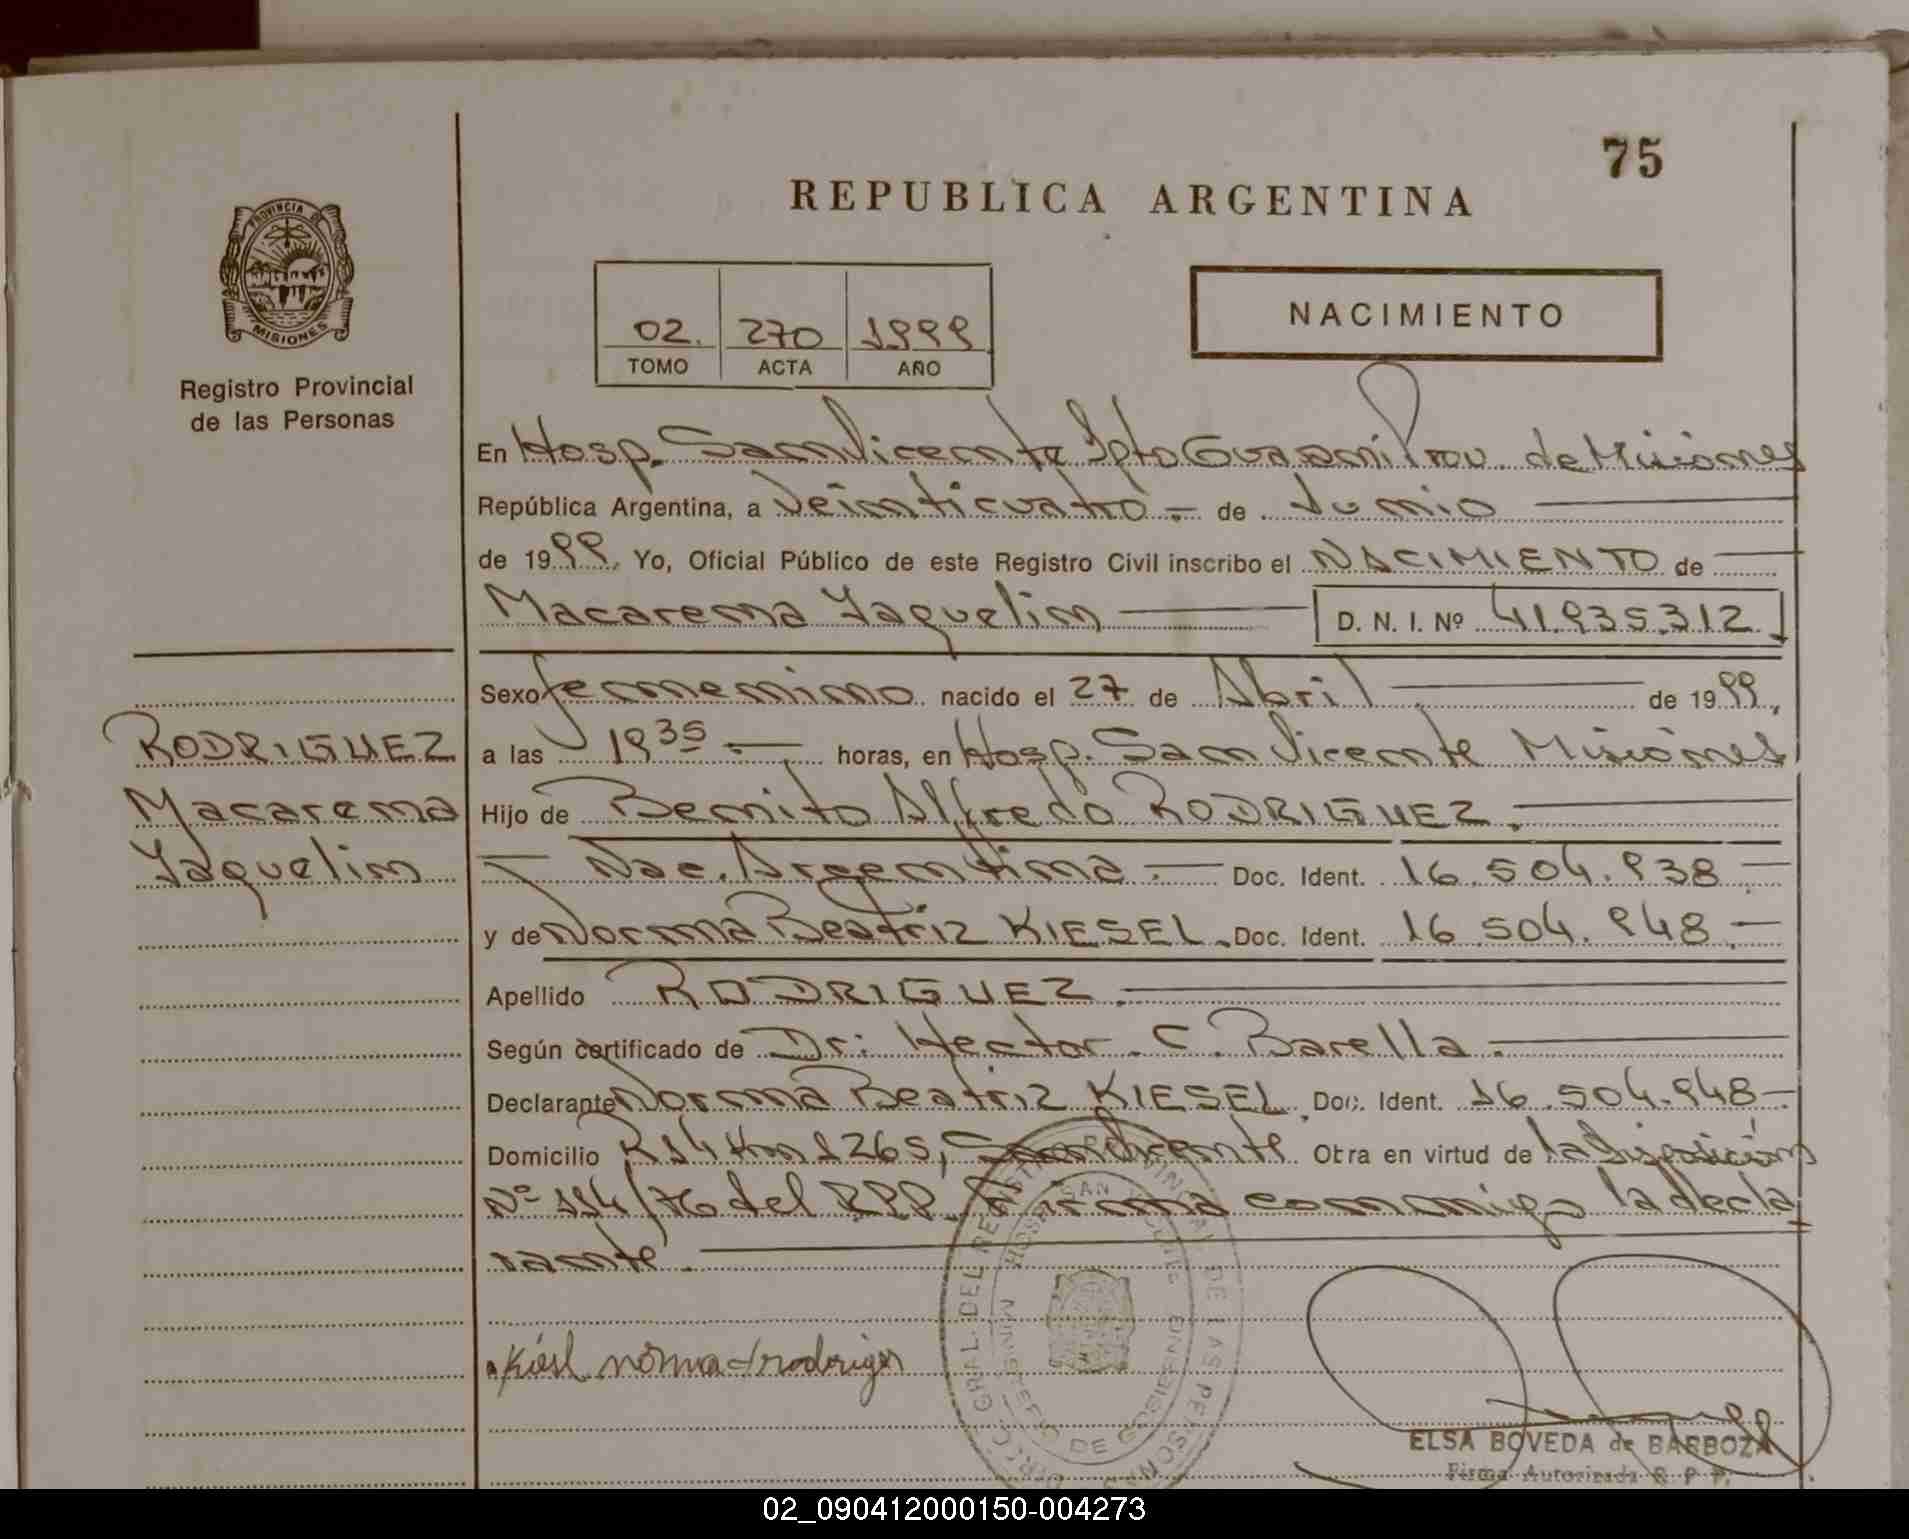 75
REPUBLICA ARGENTINA
PROVINCIA DE
MISIONES
Registro Provincial
de las Personas
02. 270 1999
TOMO ACTA AÑO
NACIMIENTO
En Hosp. San Vicente Dpto Guaraní Prov. de Misiones
República Argentina, a Veinticuatro.- de Junio
de 1999. Yo, Oficial Público de este Registro Civil inscribo el NACIMIENTO de
Macarena Yaquelin D. N. I. Nº 41.935.312
Sexo femenino nacido el 27 de Abril de 1999,
a las 19 35 .- horas, en Hosp. San Vicente Misiones
Hijo de Benito Alfredo RODRIGUEZ.
- Nac. Argentina.- Doc. Ident. 16.504.938.-
y de Norma Beatriz KIESEL. Doc. Ident. 16.504.948.-
Apellido RODRIGUEZ.
Según certificado de Dr. Hector C. Barella.
Declarante Norma Beatriz KIESEL. Doc. Ident. 16.504.948-
Domicilio R14 Km 1265, San Vicente Otra en virtud de la Disposición
Nº 114/76 del RPP. Firma conmigo la decla
rante.
RODRIGUEZ
Macarena
Yaquelin
Kiesl norma d rodrigez
DIREC. GRAL. DEL REGISTRO PROVINCIAL DE LAS PERSONAS
HOSP. SAN VICENTE
MINISTERIO DE GOBIERNO
ELSA BOVEDA de BARBOZA
Firma Autorizada R. P. P.
02_090412000150-004273